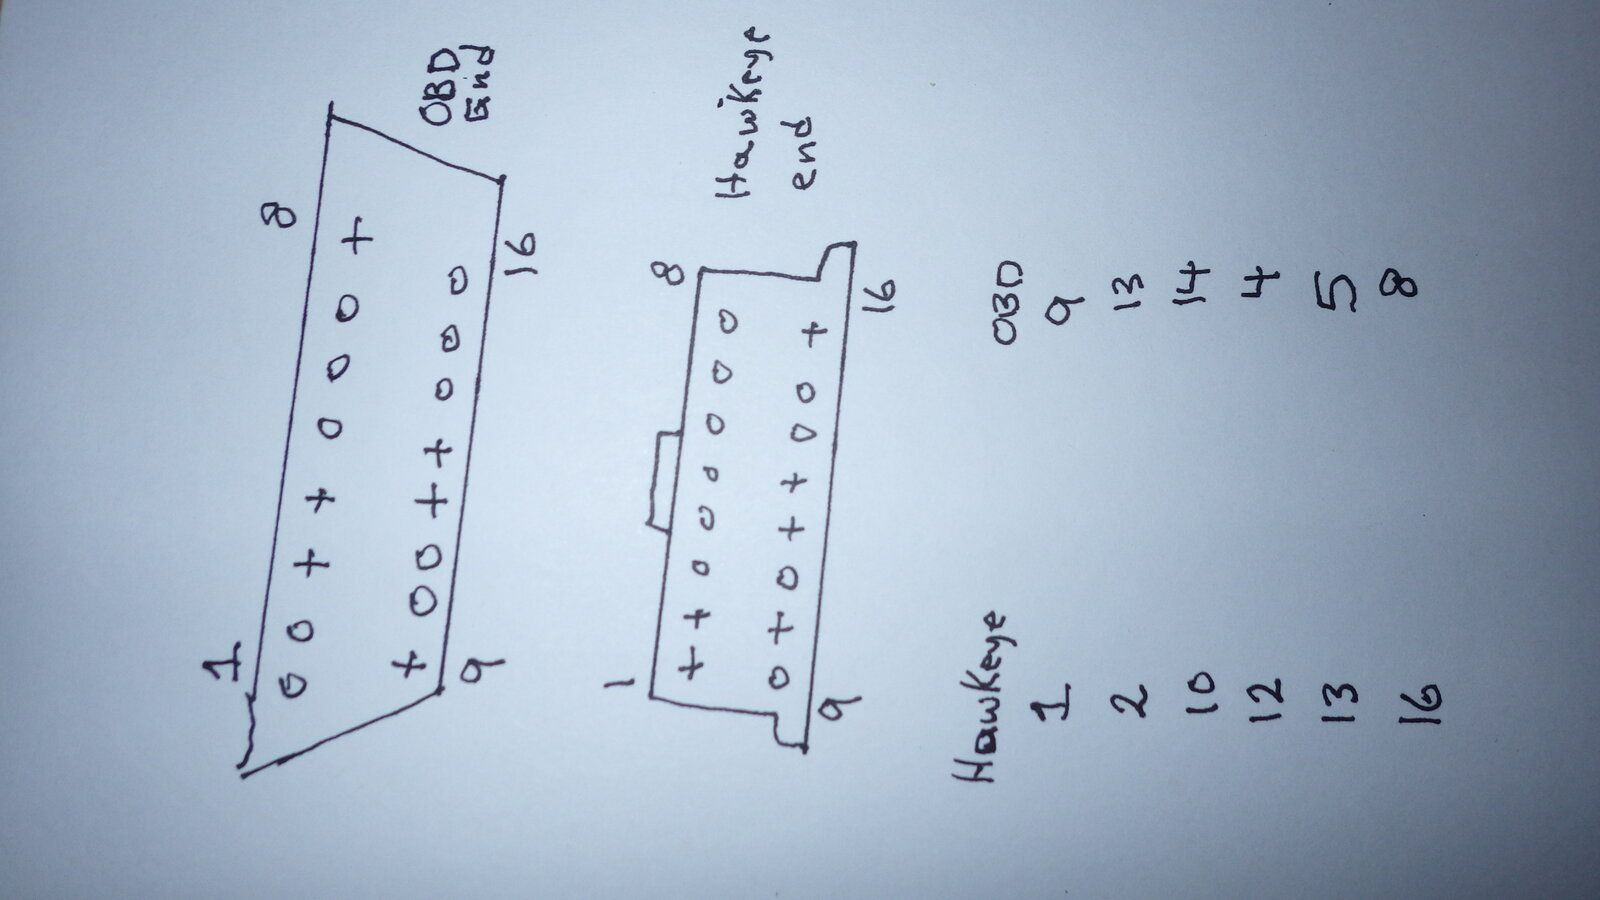 1 8
OBD
End
9 16
1 8
Hawkeye
end
9 16
Hawkeye OBD
1 9
2 13
10 14
12 4
13 5
16 8